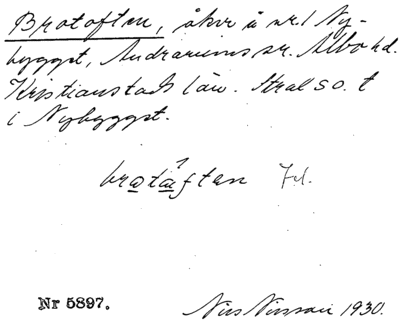 Brotoften, åker å nr. 1 Ny-
byggt, Andrarums sn. Albo hd.
Kristianstads län. Strax so. t
i Nybyggt.
brotaften
Nr 5897.
Nils Nilsson 1930.